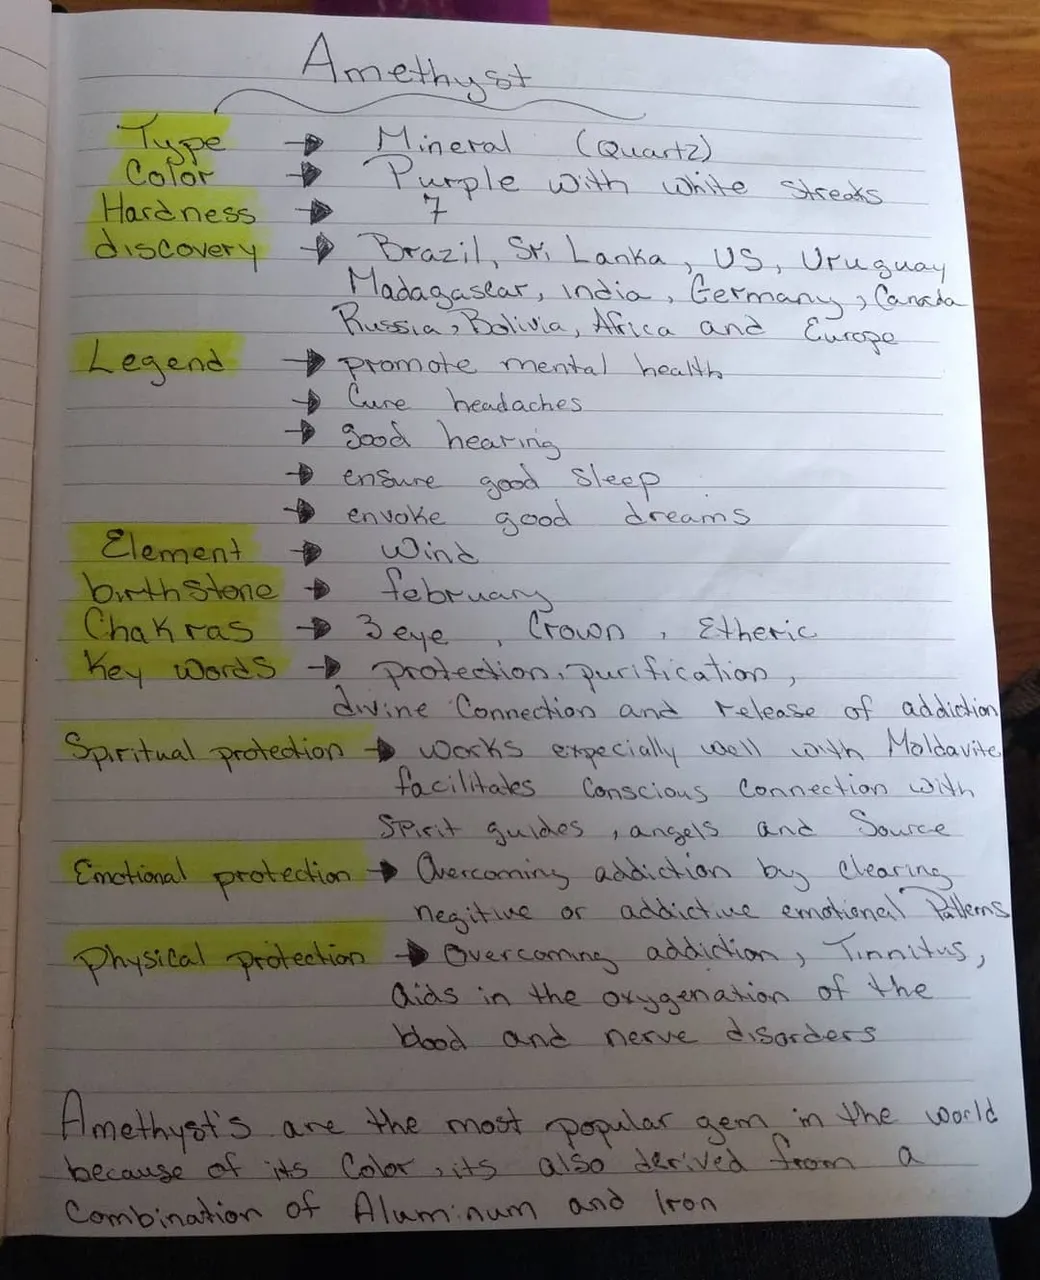 Amethyst
Type → Mineral (Quartz)
Color → Purple with white streaks
Hardness → 7
discovery → Brazil, Sri Lanka, US, Uruguay
Madagascar, india, Germany, Canada
Russia, Bolivia, Africa and Europe
Legend → promote mental health
→ Cure headaches
→ good hearing
→ ensure good sleep
→ envoke good dreams
Element → Wind
birthstone → february
Chakras → 3 eye, Crown, Etheric
Key words → protection, purification,
divine Connection and release of addiction
Spiritual protection → works expecially well with Moldavite
facilitates Conscious Connection with
Spirit guides, angels and Source
Emotional protection → Overcoming addiction by clearing
negitive or addictive emotional Patterns
Physical protection → Overcoming addiction, Tinnitus,
aids in the oxygenation of the
blood and nerve disorders
Amethyst's are the most popular gem in the world
because of its Color, its also derived from a
Combination of Aluminum and Iron